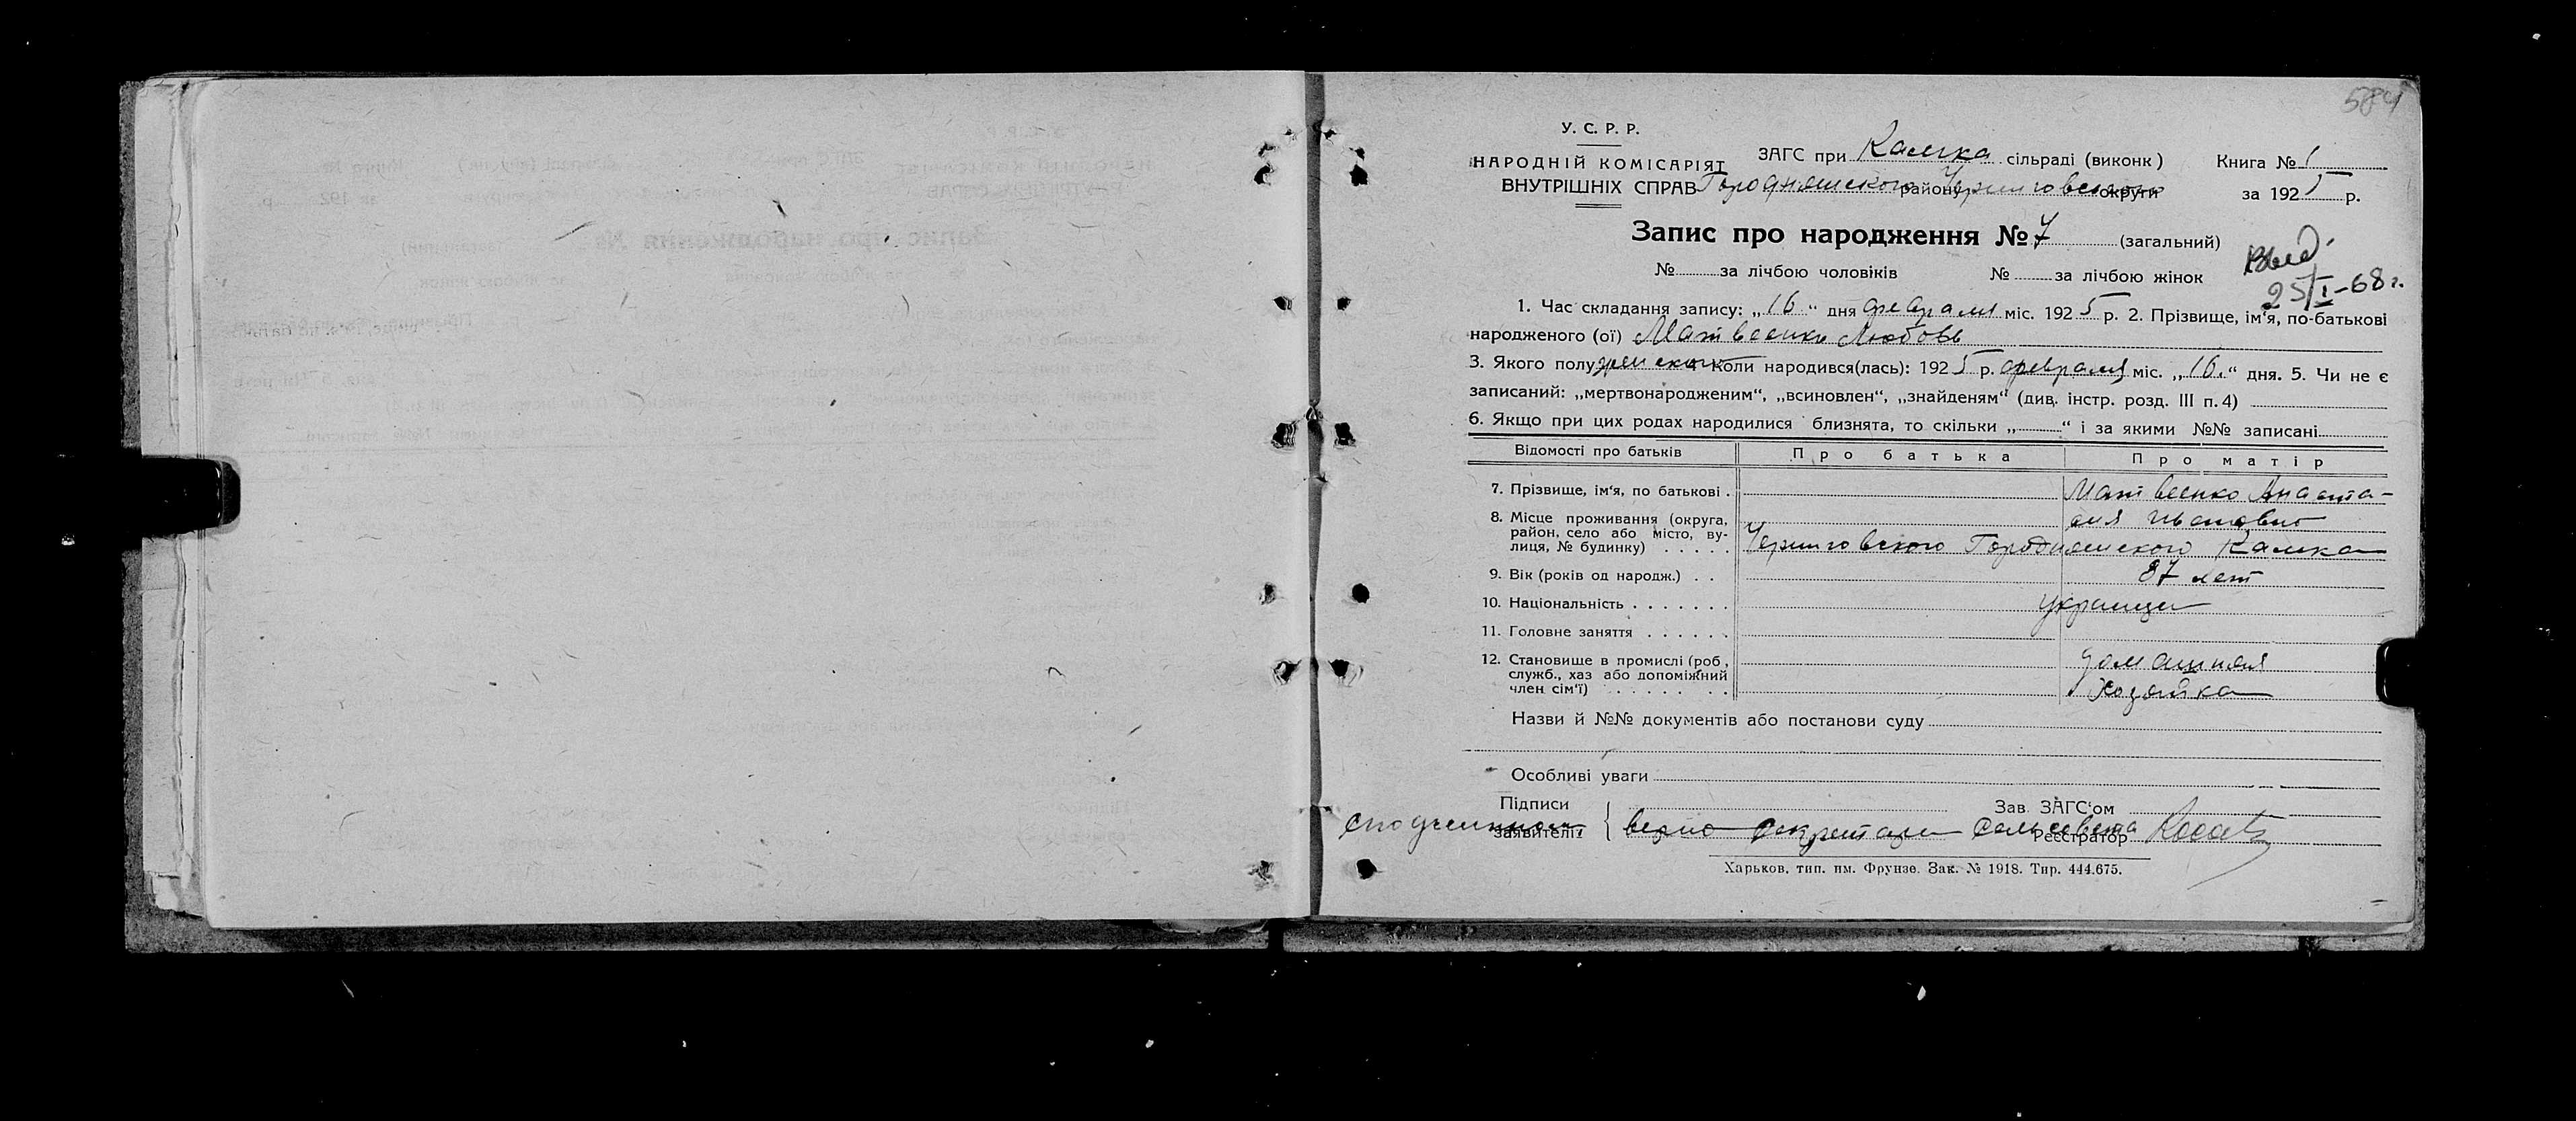 584
У. С. Р. Р.
НАРОДНІЙ КОМІСАРІЯТ
ВНУТРІШНІХ СПРАВ
ЗАГС при Камка сільраді (виконк)
Городнянского району Черниговского округи
Книга № 1
за 1925 р.
Запис про народження № 7 (загальний)
№ за лічбою чоловіків № за лічбою жінок
Выд.
25/I-68 г.
1. Час складання запису: „16“ дня февраля міс. 1925 р. 2. Прізвище, ім'я, по-батькові
народженого (ої) Матвеенко Любовь
3. Якого полу женского 4 Коли народився(лась): 1925 р. февраля міс. „16.“ дня. 5. Чи не є
записаний: „мертвонародженим“, „всиновлен“, „знайденям“ (див. інстр. розд. III п. 4)
6. Якщо при цих родах народилися близнята, то скільки „ “ і за якими №№ записані
Відомості про батьків Про батька Про матір
7. Прізвище, ім'я, по батькові . Матвеенко Анаста-
сия Ивановна
8. Місце проживання (округа,
район, село або місто, ву-
лиця, № будинку) . . . . . Черниговского Городнянского Камка
9. Вік (років од народж.) . . 37 лет
10. Національність . . . . . . . украинцы
11. Головне заняття . . . . . .
12. Становище в промислі (роб,
служб., хаз або допоміжний
член сім'ї) . . . . . . . . домашняя
хозяйка
Назви й №№ документів або постанови суду
Особливі уваги
Підписи
заявителі:
Зав. ЗАГС'ом
Реєстратор
С подлинным верно секретарь сельсовета
Харьков, тип. им. Фрунзе. Зак. № 1918. Тир. 444.675.